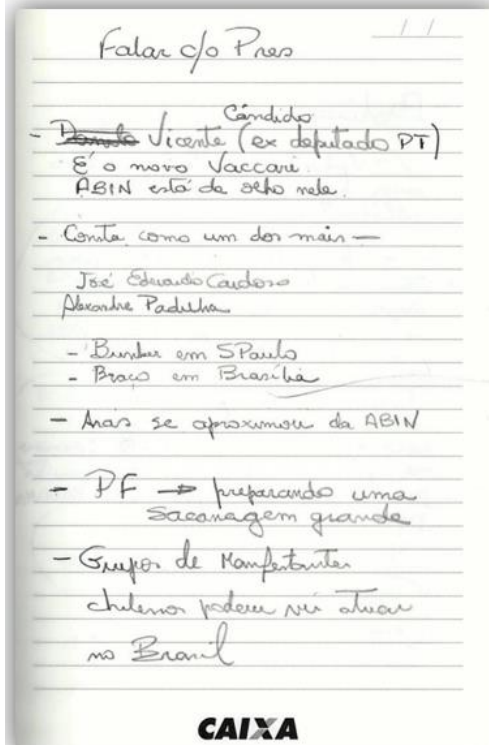 / /
Falar c/o Pres
Cândido
- Vicente (ex deputado PT)
É o novo Vaccari.
ABIN está de olho nele.
- Consta como um dos mais —
José Eduardo Cardoso
Alexandre Padilha
- Bunker em SPaulo
- Braço em Brasília
- se aproximou da ABIN
- PF → preparando uma
sacanagem grande
- Grupos de Manfestantes
chilenos podem vir atuar
no Brasil
CAIXA